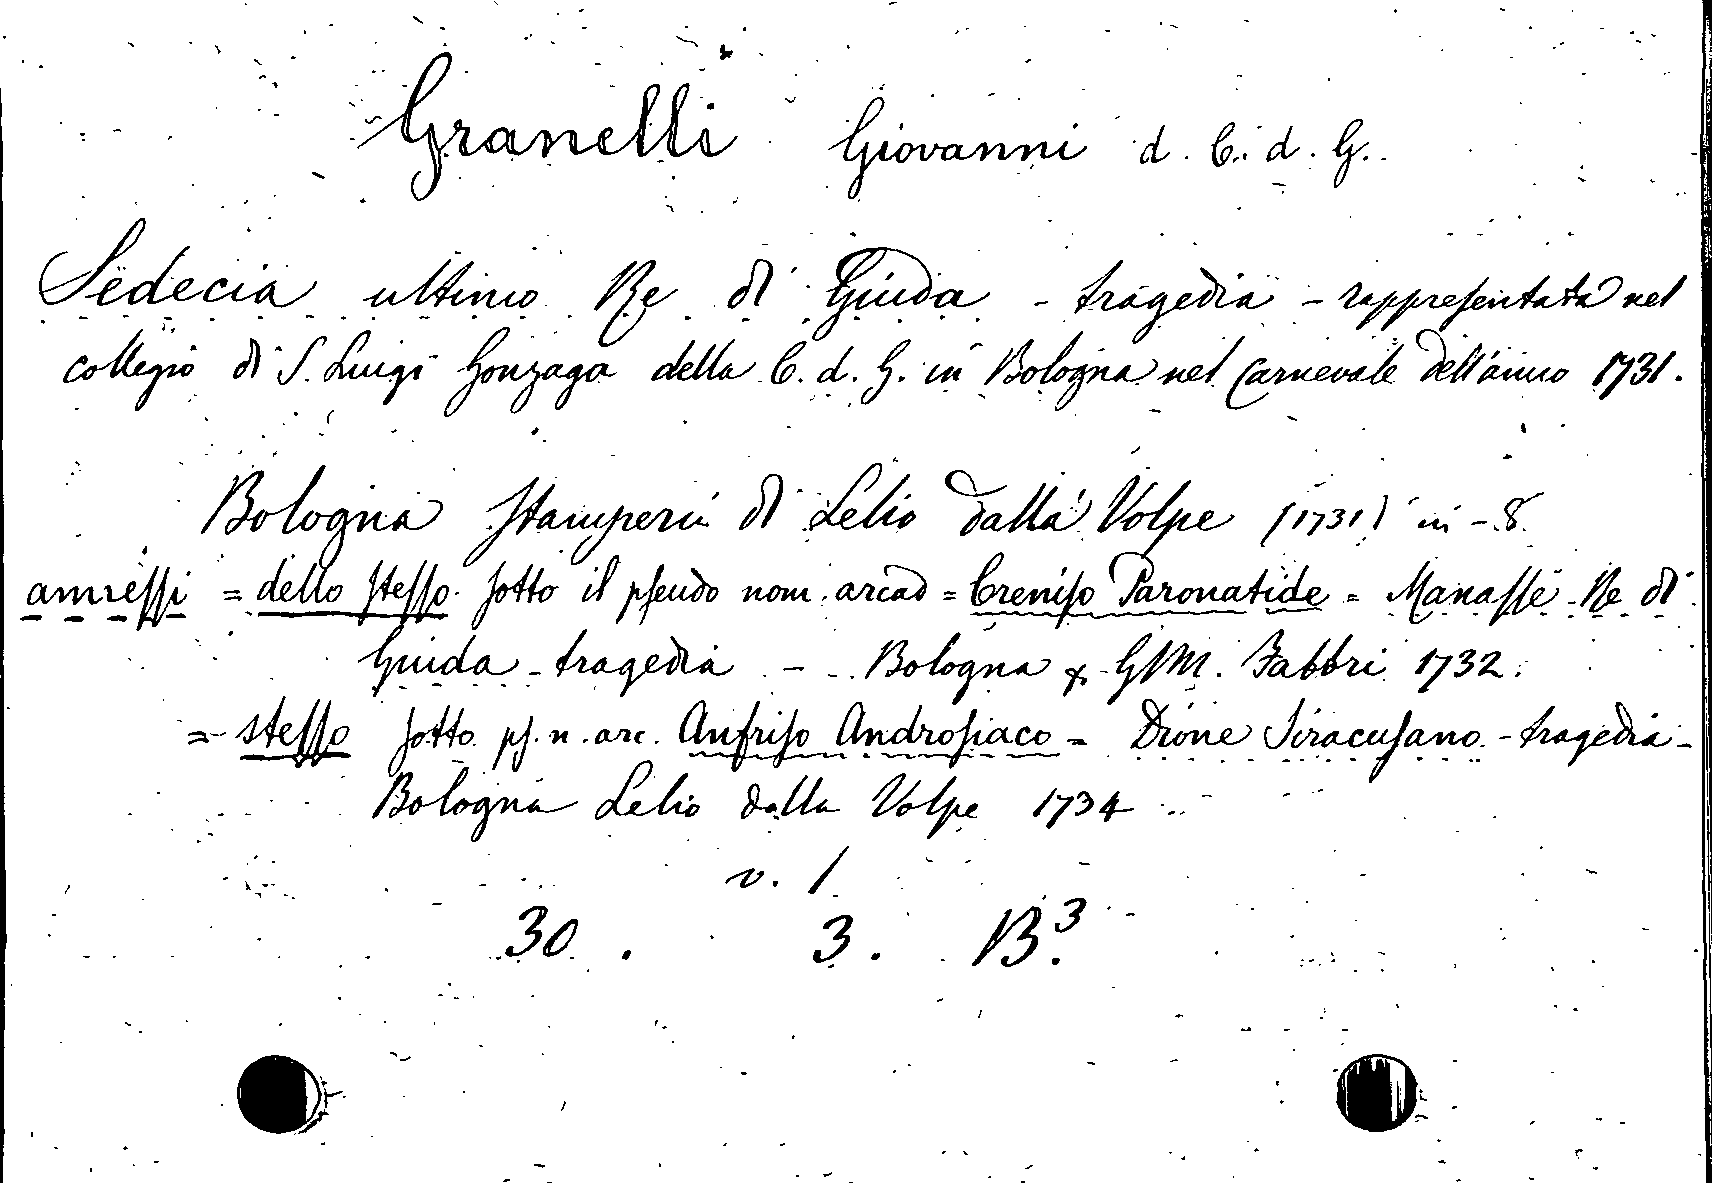 Granelli Giovanni d. C. d. G.
Sedecia ultimo Re di Giuda - tragedia - rappresentata nel
collegio di S. Luigi Gonzaga della C. d. G. in Bologna nel Carnevale dell'anno 1731.
Bologna Stamperia di Lelio dalla Volpe (1731) in - 8
annessi = dello stesso sotto il pseudo nom. arcad = Creniso Paronatide = Manasse Re di
Giuda - tragedia - Bologna G M. Fabbri 1732.
= stesso sotto ps. n. arc. Anfriso Androsiaco = Dione Siracusano - tragedia -
Bologna Lelio dalla Volpe 1734
v. 1
30 . 3. B³.